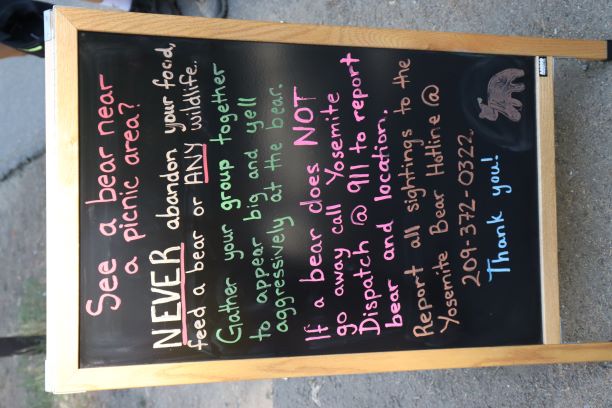 See a bear near
a picnic area?
NEVER abandon your food,
feed a bear or ANY wildlife.
Gather your group together
to appear big and yell
aggressively at the bear.
If a bear does NOT
go away call Yosemite
Dispatch @ 911 to report
bear and location.
Report all sightings to the
Yosemite Bear Hotline @
209-372-0322.
Thank you!